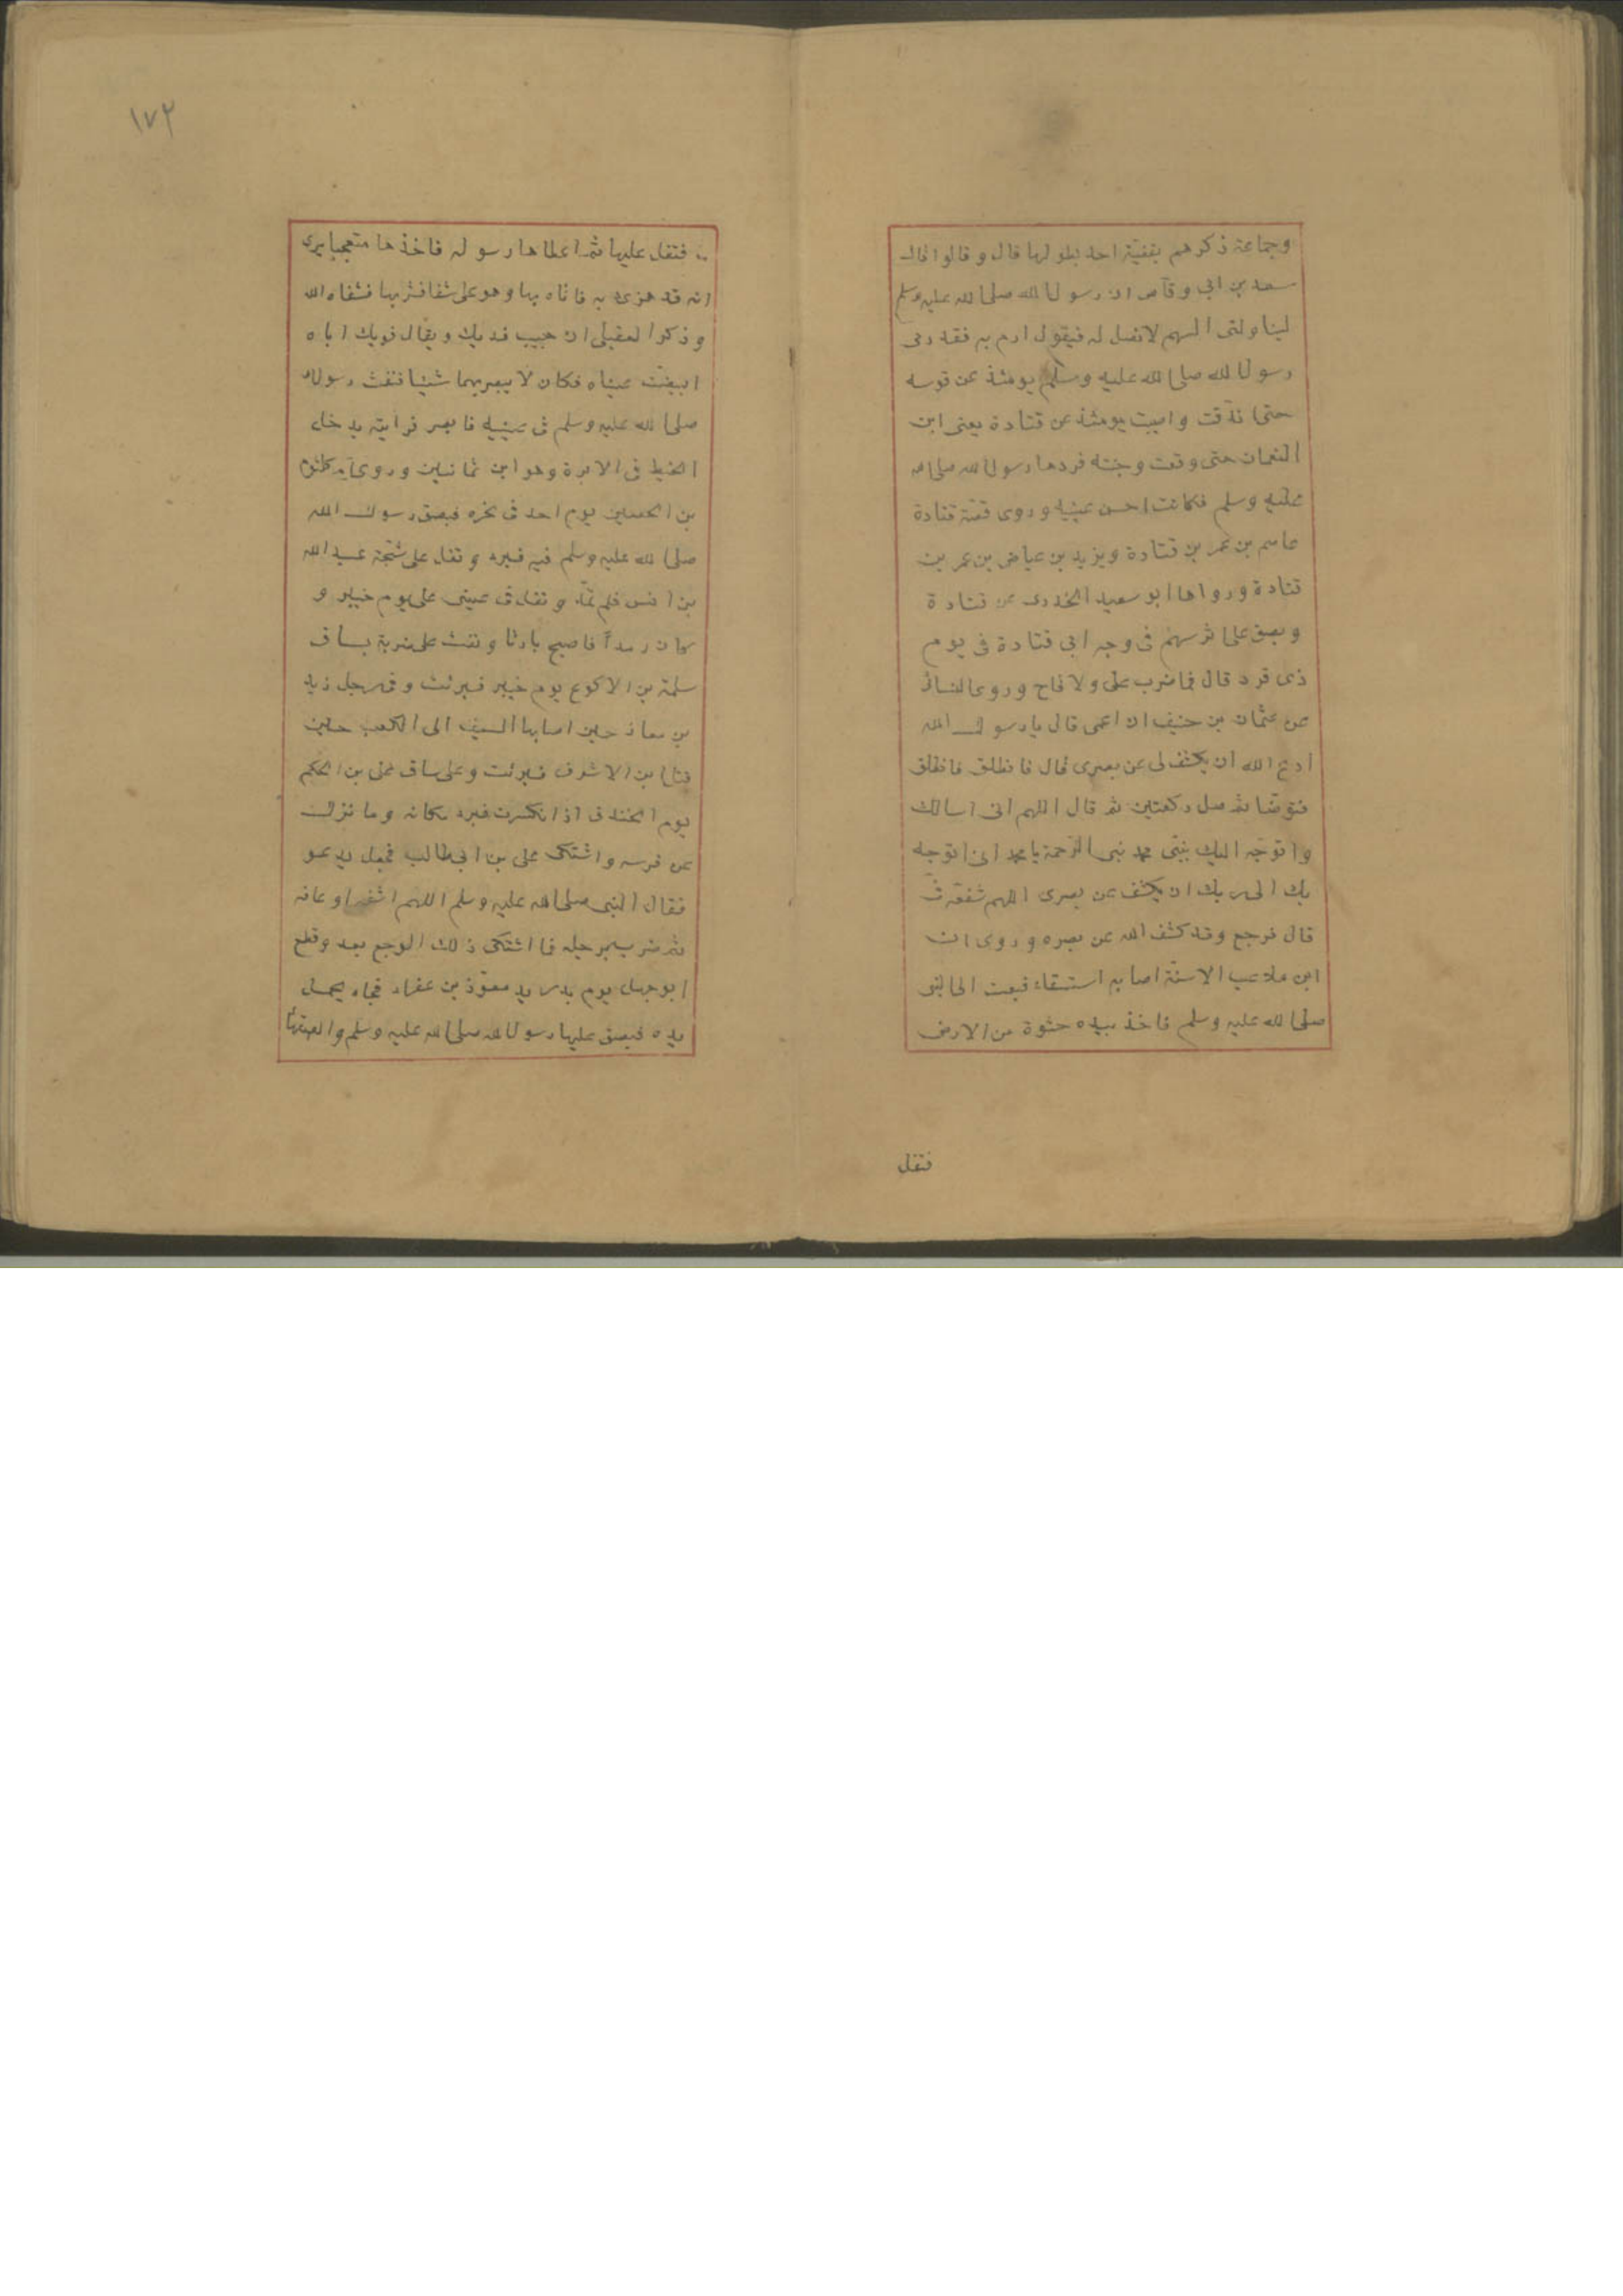 وجماعة ذكرهم بقضية احد بطولها قال وقالوا قال
سعد بن ابي وقاص ان رسول الله صلى الله عليه وسلم
ليناولنى السهم لا نصل له فيقول ارم به فقد رمى
رسول الله صلى الله عليه وسلم يومئذ عن قوسه
حتى اندقت واصيبت يومئذ عين قتادة يعنى ابن
النعمان حتى وقعت وجنته فردها رسول الله صلى الله
عليه وسلم فكانت احسن عينيه وروى قصة قتادة
عاصم بن عمر بن قتادة ويزيد بن عياض بن عمر بن
قتادة ورواها ابو سعيد الخدرى عن قتادة
وبصق على اثر سهم فى وجه ابي قتادة فى يوم
ذى قرد قال فما ضرب على ولا قاح وروى النسائى
عن عثمان بن حنيف ان اعمى قال يا رسول الله
ادع الله ان يكشف لى عن بصرى قال فانطلق فانطلق
فتوضا ثم صل ركعتين ثم قال اللهم انى اسالك
واتوجه اليك بنبيى محمد نبى الرحمة يا محمد انى اتوجه
بك الى ربك ان يكشف عن بصرى اللهم شفعه فى
قال فرجع وقد كشف الله عن بصره وروى ان
ابن ملاعب الاسنة اصابه استسقاء فبعث الى النبى
صلى الله عليه وسلم فاخذ بيده حثوة من الارض
فتفل
١٧٢
فتفل عليها ثم اعطاها رسوله فاخذها متعجبا يرى
انه قد هزئ به فاتاه بها وهو على شفا فشربها فشفاه الله
وذكر العقيلى ان حبيب فديك ويقال فويك اباه
ابيضت عيناه فكان لا يبصر بهما شيئا فنفث رسول الله
صلى الله عليه وسلم فى عينيه فابصر فرايته يدخل
الخيط فى الابرة وهو ابن ثمانين ورمى كلثوم
بن الحصين يوم احد فى نحره فبصق رسول الله
صلى الله عليه وسلم فيه فبره وتفل على شجة عبد الله
بن انس فلم تمد وتفل فى عينى على يوم خيبر و
كان رمدا فاصبح بارئا ونفث على ضربة بساق
سلمة بن الاكوع يوم خيبر فبرئت وفى رجل زيد
بن معاذ حين اصابها السيف الى الكعب حين
قتل ابن الاشرف فبرئت وعلى ساق على بن الحكم
يوم الخندق اذ انكسرت فبرد مكانه وما نزل
عن فرسه واشتكى على بن ابى طالب فجعل يدعو
فقال النبى صلى الله عليه وسلم اللهم اشفه او عافه
ثم ضربه برجله فما اشتكى ذلك الوجع بعد وقطع
ابو جهل يوم بدر يد معوذ بن عفراء فجاء يحمل
يده فبصق عليها رسول الله صلى الله عليه وسلم والصقها